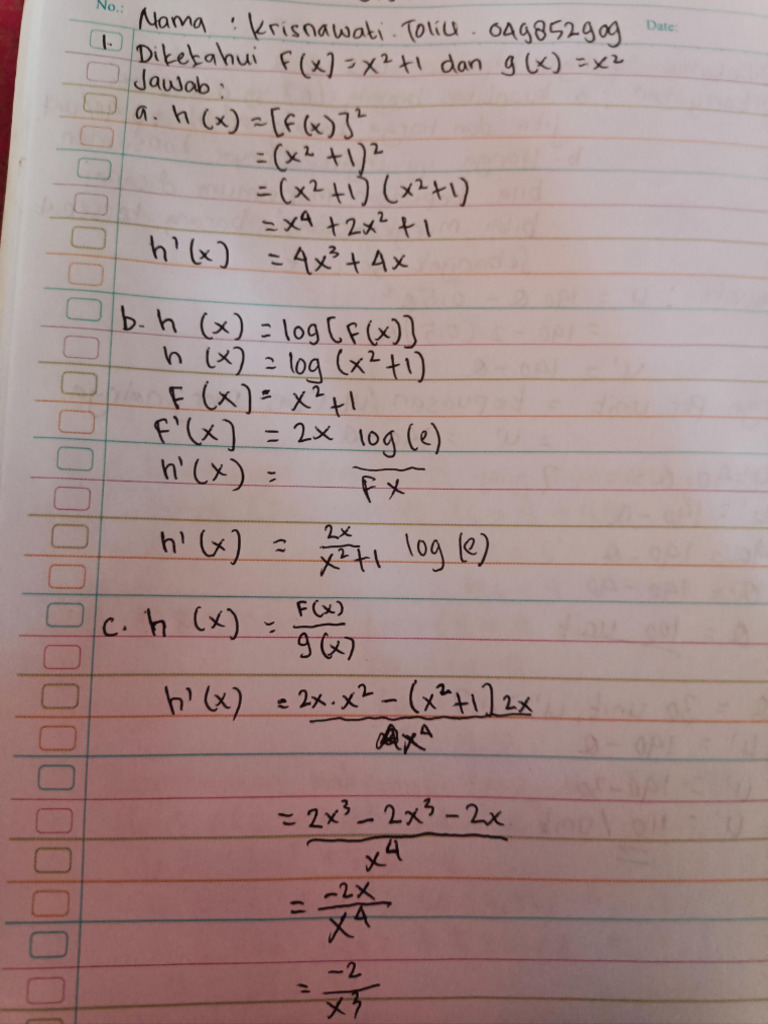 No.:
Date:
Nama : Krisnawati. Toliu. 049852909
1. Diketahui F(x) = x² + 1 dan g(x) = x²
Jawab :
a. h (x) = [F(x)]²
= (x² + 1)²
= (x² + 1) (x² + 1)
= x⁴ + 2x² + 1
h'(x) = 4x³ + 4x
b. h (x) = log [F(x)]
h (x) = log (x² + 1)
F (x] = x² + 1
F'(x] = 2x log (e)
h'(x) = ‾‾‾ F x
h'(x) = 2x / x² + 1 log (e)
c. h (x) = F(x) / g(x)
h'(x) = 2x · x² – (x² + 1] 2x / x⁴
= 2x³ – 2x³ – 2x / x⁴
= –2x / x⁴
= –2 / x³